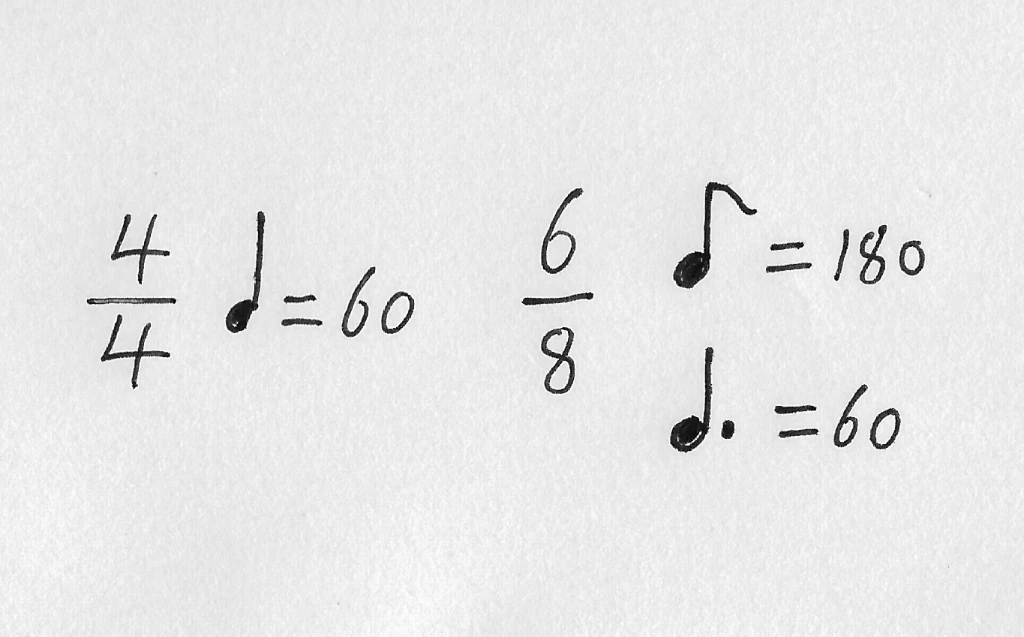 4/4 ♩ = 60
6/8 ♪ = 180
♩. = 60